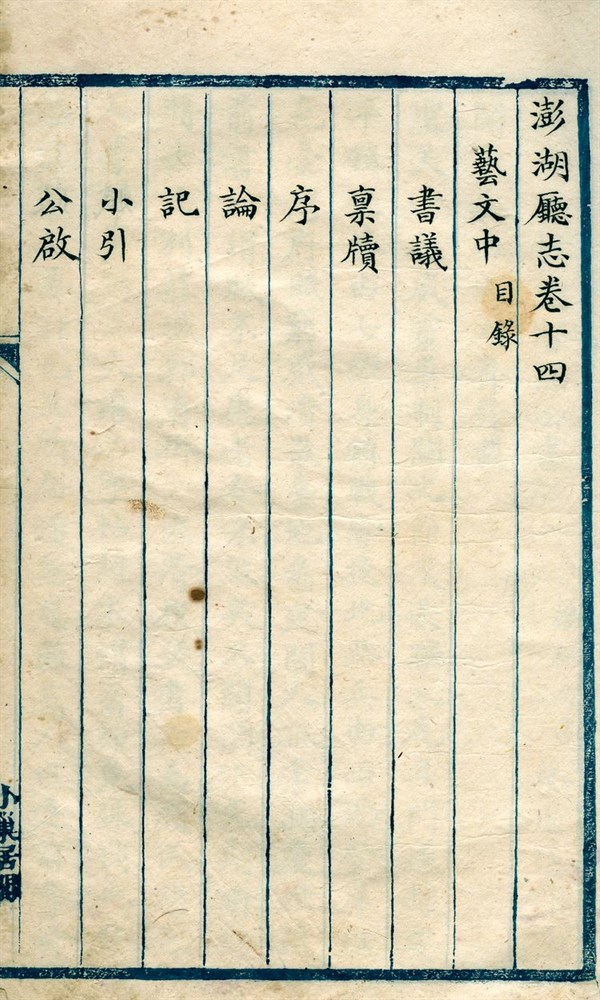 澎湖廳志卷十四
藝文中 目錄
書議
稟牘
序
論
記
小引
公啟